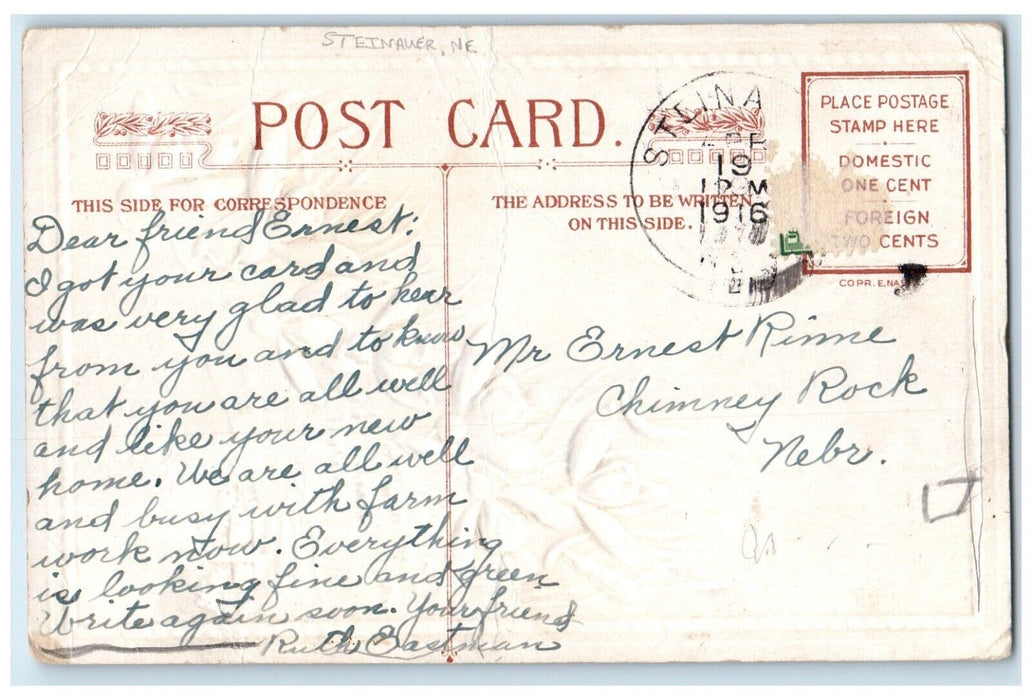 STEINAUER, NE
POST CARD.
THIS SIDE FOR CORRESPONDENCE
THE ADDRESS TO BE WRITTEN
ON THIS SIDE.
STEINA
19
1916
PLACE POSTAGE
STAMP HERE
DOMESTIC
ONE CENT
FOREIGN
TWO CENTS
COPR. E.NAS
Dear friend Ernest:
I got your card and
was very glad to hear
from you and to know
that you are all well
and like your new
home. We are all well
and busy with farm
work now. Everything
is looking fine and green
Write again soon. Your friend
Ruth Eastman
Mr Ernest Rinne
Chimney Rock
Nebr.